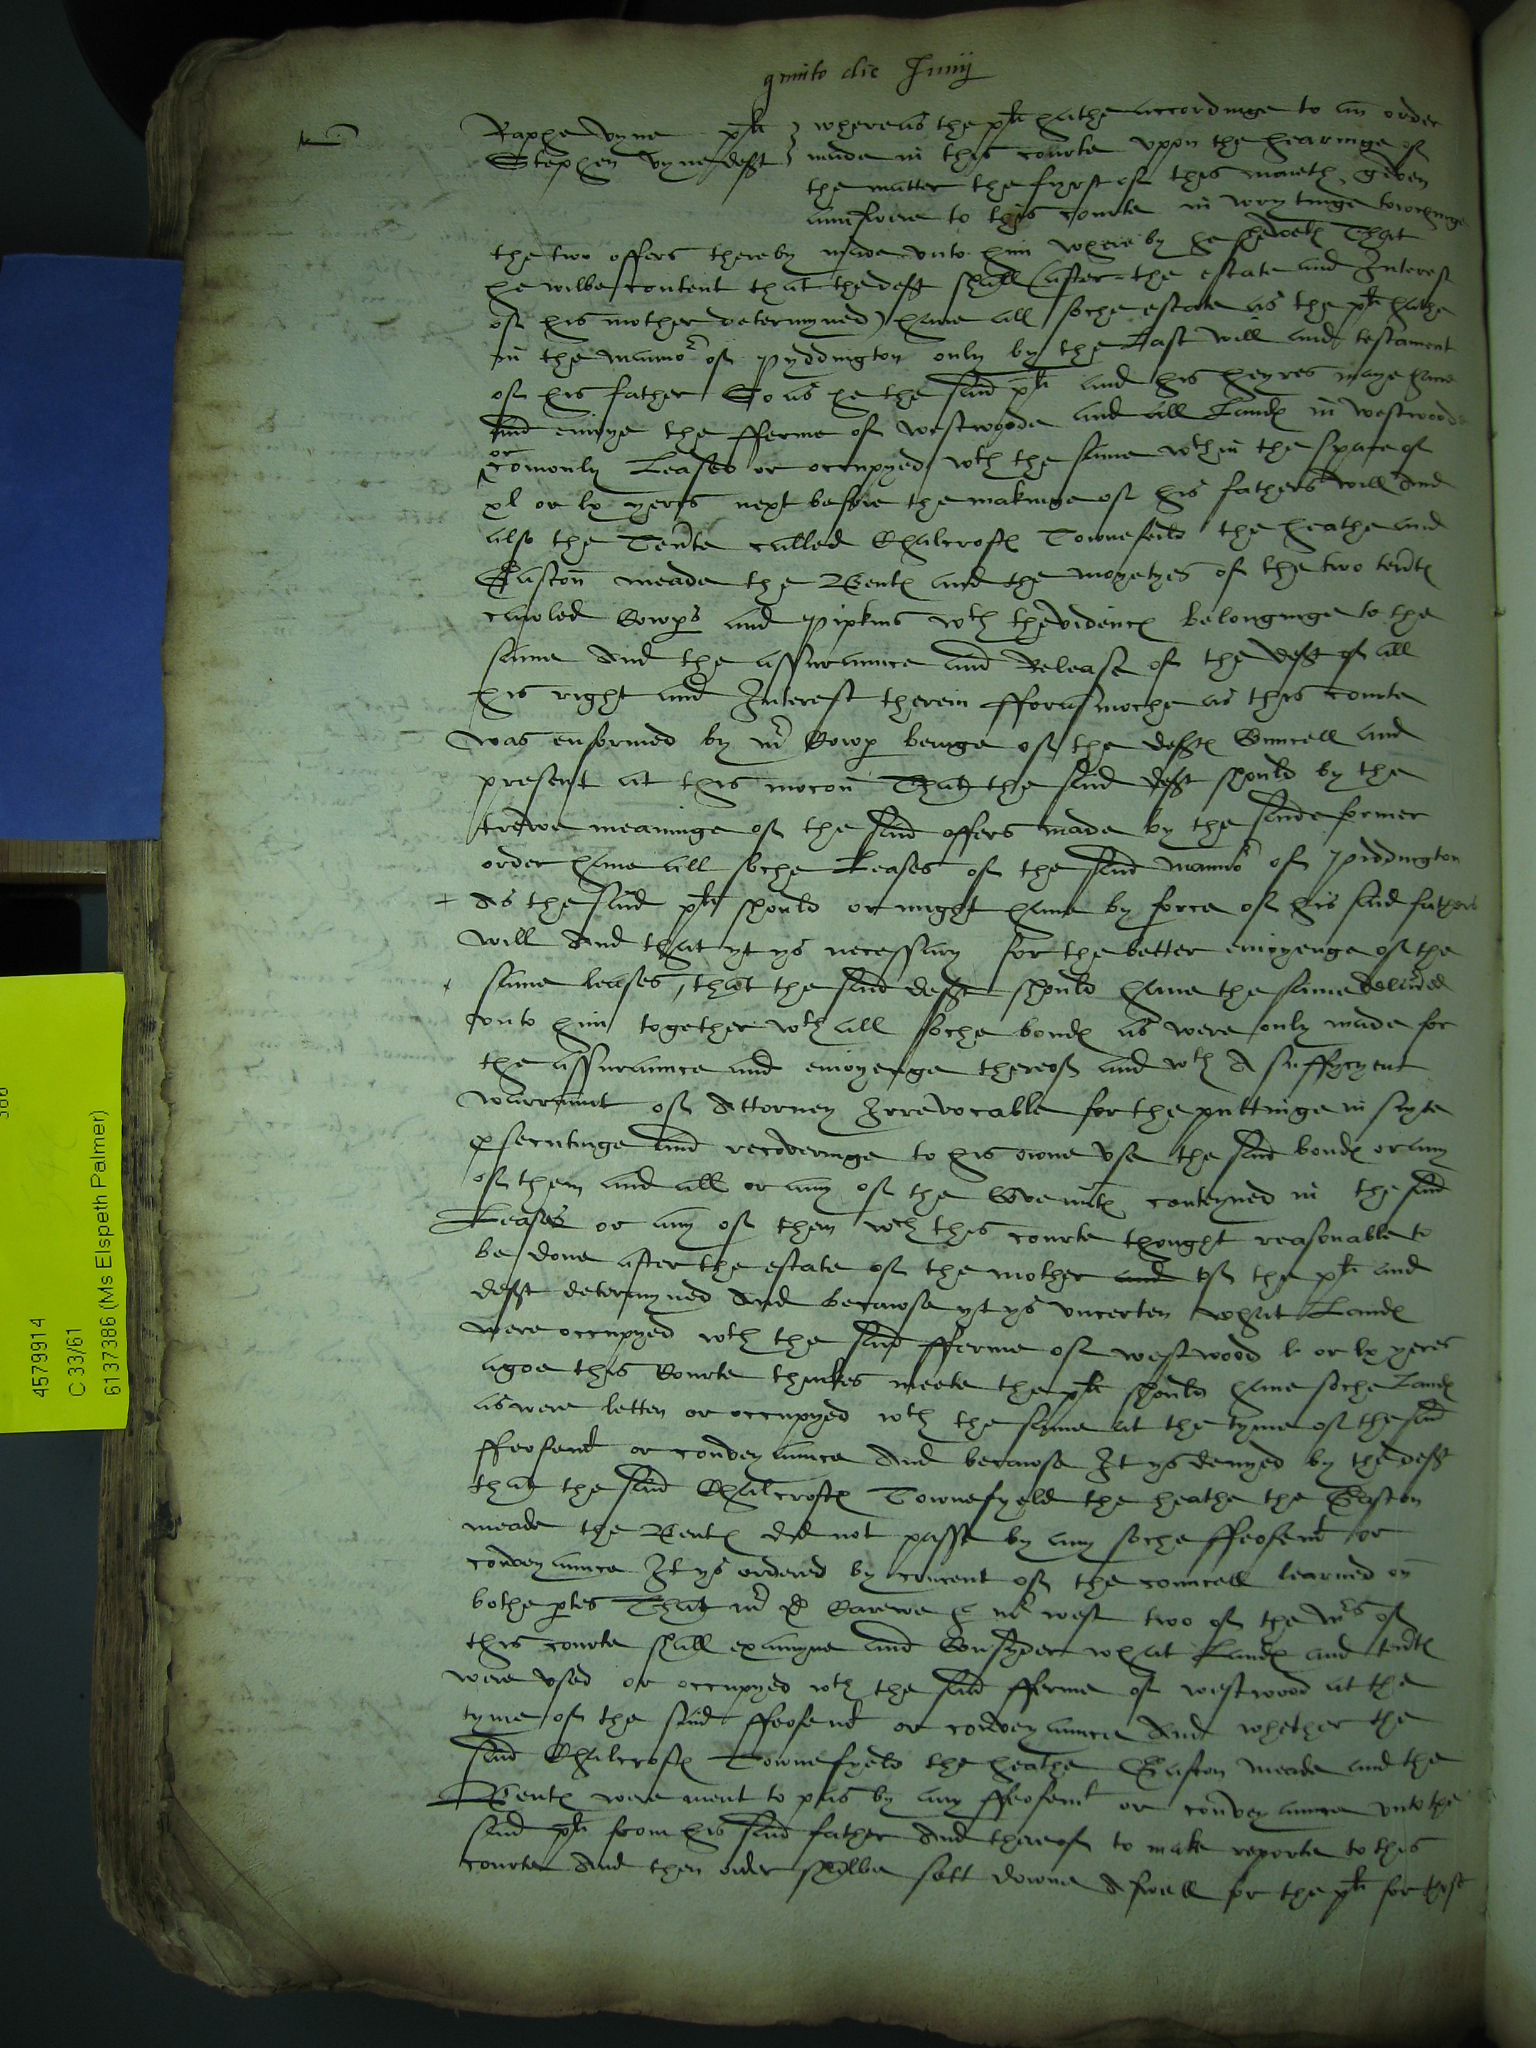 quinto die Junij
Raphe Vyne płt
Stephen Vyne deft
whereas the płt hathe accordinge to an order
made in this courte uppon the hearinge of
the matter the fyrst of this moneth geven
aunswere to this courte in wrytinge towchinge
the two offers thereby made unto him whereby he sheweth That
he wilbe content that the deft shall (after the estate and Interest
of his mother determyned) have all soche estate as the płt hathe
in the mannor of Pyddington only by the Last will and testament
of his father So as he the said płt and his heyres maye have
and enioye the fferme of westwoode and all Landes in westwoode
or
comonly Leased or occupyed wth the same wthin the space of
xl or lx yeres next before the makinge of his fathers will And
also the Tente called Chalcroftes Townefeild the heathe and
Easton meade the Rentes and the moyetyes of the two tentes
cawled Cowpers and Pipkins wth thevidences belonginge to the
same And the assuraunce and Release of the deft of all
his right and Interest therein fforasmoche as this courte
was enformed by mr Cowper beinge of the deftes Councell and
present at this mocon That the said deft should by the
trewe meaninge of the said offers made by the saide former
order have all soche Leases of the said mannor of Piddington
As the said płt should or might have by force of his said fathers
will And that yt ys necessary for the better enioyenge of the
same leases, that the said deft should have the same delivered
unto him together wth all soche bondes as were only made for
the assuraunce and enioyenge thereof and wth A suffycyent
warraunt of Attorney Irrevocable for the puttinge in suyte
prosecutinge and recoveringe to his owne use the said bondes or any
of them and all or any of the Covenntes conteyned in the said
Leases or any of them wch this courte thought reasonable to
be done after the estate of the mother and of the płt and
deft determyned And becawse yt ys uncerten what Landes
were occupyed wth the said fferme of westwood l or lx yeres
agoe this Courte thinkes meete the płt should have soche Landes
as were letten or occupyed wth the same at the tyme of the said
ffeofemt or conveyaunce And becawse It ys denyed by the deft
that the said Chalcroftes Townefyeld the heathe the Easton
meade the Rentes did not passe by any soche ffeofemt or
conveyaunce It ys ordered by concent of the councell learned on
bothe partes That mr D Carewe & mr west two of the Mrs of
this courte shall examyne and Consyder what Landes and tentes
were used or occupyed wth the said fferme of westwood at the
tyme of the said ffeofemt or conveyaunce And whether the
said Chalcroftes Townefyeld the heathe Easton meade and the
Rentes were ment to pas by any ffeofemt or conveyaunce unto the
said płt from his said father And thereof to make reporte to this
courte And then order shalbe sett downe Aswell for the płt for those
4579914
C 33/61
6137386 (Ms Elspeth Palmer)